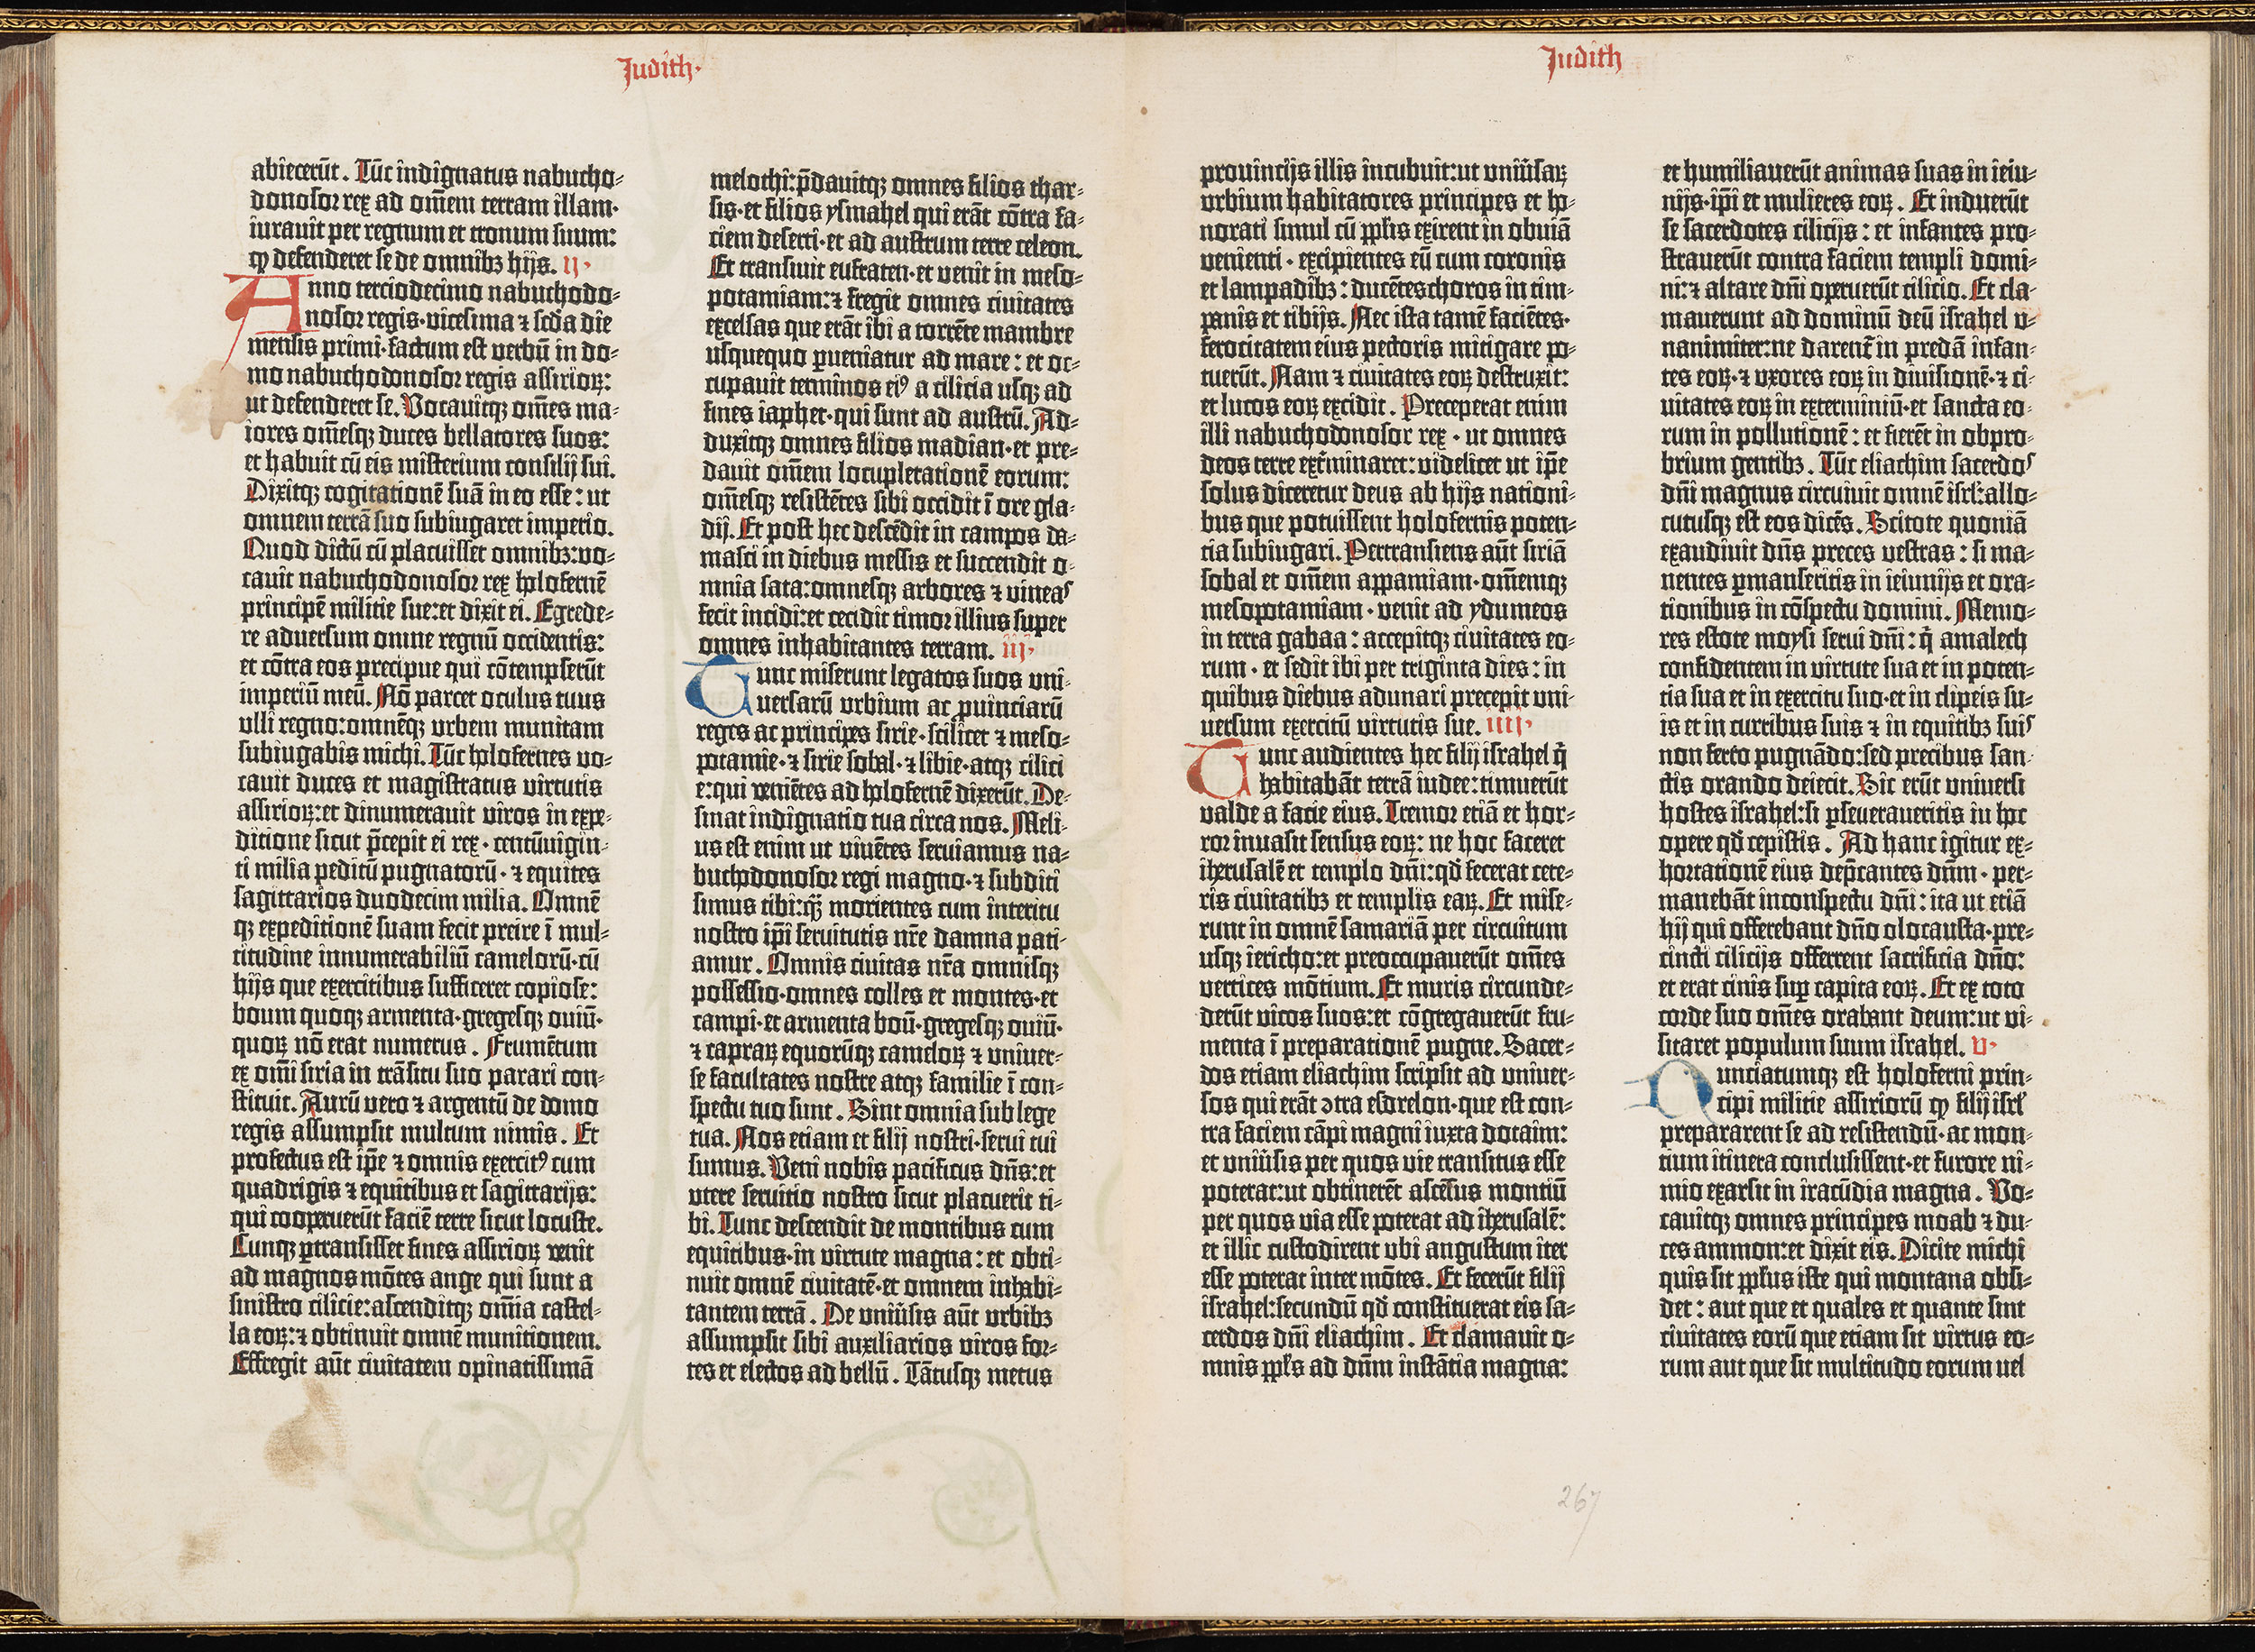 Judith·
abiecerūt. Tūc indignatus nabucho-
donosor rex ad om̄em terram illam·
iurauit per regnum et tronum suum:
ꝙ defenderet se de omnibꝫ hijs. ij·
Anno terciodecimo nabuchodo-
nosor regis·vicesima ⁊ scd̄a die
mensis primi·factum est verbū in do-
mo nabuchodonosor regis assirioꝝ:
ut defenderet se. Vocauitqꝫ om̄es ma-
iores om̄esqꝫ duces bellatores suos:
et habuit cū eis misterium consilij sui.
Dixitqꝫ cogitationē suā in eo esse: ut
omnem terrā suo subiugaret imperio.
Quod dictū cū placuisset omnibꝫ:vo-
cauit nabuchodonosor rex holofernē
principē militie sue:et dixit ei. Egrede-
re aduersum omne regnū occidentis:
et cōtra eos precipue qui cōtempserūt
imperiū meū. Nō parcet oculus tuus
ulli regno:omnēqꝫ urbem munitam
subiugabis michi. Tūc holofernes vo-
cauit duces et magistratus virtutis
assirioꝝ:et dinumerauit viros in expe-
ditione sicut p̄cepit ei rex·centūuigin-
ti milia peditū pugnatorū·⁊ equites
sagittarios duodecim milia. Omnē
qꝫ expeditionē suam fecit preire ī mul-
titudine innumerabiliū camelorū·cū
hijs que exercitibus sufficeret copiose:
boum quoqꝫ armenta·gregesqꝫ ouiū·
quoꝝ nō erat numerus. Frumētum
ex om̄i siria in trāsitu suo parari con-
stituit. Aurū vero ⁊ argentū de domo
regis assumpsit multum nimis. Et
profectus est ip̄e ⁊ omnis exercitꝰ cum
quadrigis ⁊ equitibus et sagittarijs:
qui cooperuerūt faciē terre sicut locuste.
Cunqꝫ ꝑtransisset fines assirioꝝ venit
ad magnos mōtes ange qui sunt a
sinistro cilicie:ascenditqꝫ om̄ia castel-
la eoꝝ:⁊ obtinuit omnē munitionem.
Effregit aūt ciuitatem opinatissimā
melothi:p̄dauitqꝫ omnes filios thar-
sis·et filios ysmahel qui erāt cōtra fa-
ciem deserti·et ad austrum terre celeon.
Et transiuit eufraten·et venit in meso-
potamiam:⁊ fregit omnes ciuitates
excelsas que erāt ibi a torrēte mambre
usquequo ꝑueniatur ad mare: et oc-
cupauit terminos eiꝰ a cilicia usqꝫ ad
fines iaphet·qui sunt ad austrū. Ad-
duxitqꝫ omnes filios madian·et pre-
dauit om̄em locupletationē eorum:
om̄esqꝫ resistētes sibi occidit ī ore gla-
dij. Et post hec descēdit in campos da-
masci in diebus messis et succendit o-
mnia sata:omnesqꝫ arbores ⁊ vineas
fecit incidi:et cecidit timor illius super
omnes inhabitantes terram. iij·
Tunc miserunt legatos suos uni-
uersarū urbium ac ꝓuinciarū
reges ac principes sirie·scilicet ⁊ meso-
potamie·⁊ sirie sobal·⁊ libie·atqꝫ cilici
e:qui veniētes ad holofernē dixerūt. De-
sinat indignatio tua circa nos. Meli-
us est enim ut viuētes seruiamus na-
buchodonosor regi magno·⁊ subditi
simus tibi:qꝫ̄ morientes cum interitu
nostro ip̄i seruitutis nr̄e damna pati-
amur. Omnis ciuitas nr̄a omnisqꝫ
possessio·omnes colles et montes·et
campi·et armenta boū·gregesqꝫ ouiū·
⁊ capraꝝ equorūqꝫ cameloꝝ ⁊ vniuer-
se facultates nostre atqꝫ familie ī con-
spectu tuo sunt. Sint omnia sub lege
tua. Nos etiam et filij nostri·serui tui
sumus. Veni nobis pacificus dn̄s:et
utere seruitio nostro sicut placuerit ti-
bi. Tunc descendit de montibus cum
equitibus·in virtute magna: et obti-
nuit omnē ciuitatē·et omnem inhabi-
tantem terrā. De vniūsis aūt urbibꝫ
assumpsit sibi auxiliarios viros for-
tes et electos ad bellū. Tātusqꝫ metus
Judith
prouincijs illis incubuit:ut vniūsaꝝ
urbium habitatores principes et ho-
norati simul cū pp̄lis exirent in obuiā
venienti·excipientes eū cum coronis
et lampadibꝫ: ducētes choros in tim-
panis et tibijs. Nec ista tamē faciētes·
ferocitatem eius pectoris mitigare po-
tuerūt. Nam ⁊ ciuitates eoꝝ destruxit:
et lucos eoꝝ excidit. Preceperat enim
illi nabuchodonosor rex·ut omnes
deos terre ext̄minaret: videlicet ut ip̄e
solus diceretur deus ab hijs nationi-
bus que potuissent holofernis poten-
tia subiugari. Pertransiens aūt siriā
sobal et om̄em appamiam·om̄emqꝫ
mesopotamiam·venit ad ydumeos
in terra gabaa: accepitqꝫ ciuitates eo-
rum·et sedit ibi per triginta dies: in
quibus diebus adunari precepit uni-
uersum exercitū virtutis sue. iiij·
Tunc audientes hec filij israhel q̄
habitabāt terrā iudee:timuerūt
valde a facie eius. Tremor etiā et hor-
ror inuasit sensus eoꝝ: ne hoc faceret
iherusalē et templo dn̄i:qd̄ fecerat cete-
ris ciuitatibꝫ et templis eaꝝ. Et mise-
runt in omnē samariā per circuitum
usqꝫ iericho:et preoccupauerūt om̄es
vertices mōtium. Et muris circunde-
derūt vicos suos:et cōgregauerūt fru-
menta ī preparationē pugne. Sacer-
dos etiam eliachim scripsit ad vniuer-
sos qui erāt ↄtra esdrelon·que est con-
tra faciem cāpi magni iuxta dotaim:
et vniūsis per quos vie transitus esse
poterat:ut obtinerēt ascēsus montiū
per quos via esse poterat ad iherusalē:
et illic custodirent ubi angustum iter
esse poterat inter mōtes. Et fecerūt filij
israhel:secundū qd̄ constituerat eis sa-
cerdos dn̄i eliachim. Et clamauit o-
mnis pp̄ls ad dn̄m instātia magna:
et humiliauerūt animas suas in ieiu-
nijs·ip̄i et mulieres eoꝝ. Et induerūt
se sacerdotes cilicijs: et infantes pro-
strauerūt contra faciem templi domi-
ni:⁊ altare dn̄i operuerūt cilicio. Et cla-
mauerunt ad dominū deū israhel v-
nanimiter:ne darent᷑ in predā infan-
tes eoꝝ·⁊ uxores eoꝝ in diuisionē·⁊ ci-
uitates eoꝝ in exterminiū·et sancta eo-
rum in pollutionē: et fierēt in obpro-
brium gentibꝫ. Tūc eliachim sacerdos
dn̄i magnus circuiuit omnē isrl̄:allo-
cutusqꝫ est eos dicēs. Scitote quoniā
exaudiuit dn̄s preces vestras: si ma-
nentes ꝑmanseritis in ieiunijs et ora-
tionibus in cōspectu domini. Memo-
res estote moysi serui dn̄i: q̄ amalech
confidentem in virtute sua et in poten-
tia sua et in exercitu suo·et in clipeis su-
is et in curribus suis ⁊ in equitibꝫ suis
non ferro pugnādo:sed precibus san-
ctis orando deiecit. Sic erūt vniuersi
hostes israhel:si ꝑseueraueritis in hoc
opere qd̄ cepistis. Ad hanc igitur ex-
hortationē eius dep̄cantes dn̄m·per-
manebāt inconspectu dn̄i: ita ut etiā
hij qui offerebant dn̄o olocausta·pre-
cincti cilicijs offerrent sacrificia dn̄o:
et erat cinis suꝑ capita eoꝝ. Et ex toto
corde suo om̄es orabant deum:ut vi-
sitaret populum suum israhel. v·
Nunciatumqꝫ est holoferni prin-
cipi militie assiriorū ꝙ filij isrl̄
prepararent se ad resistendū·ac mon-
tium itinera conclusissent·et furore ni-
mio exarsit in iracūdia magna. Vo-
cauitqꝫ omnes principes moab ⁊ du-
ces ammon:et dixit eis. Dicite michi
quis sit pp̄lus iste qui montana obsi-
det: aut que et quales et quante sint
ciuitates eorū que etiam sit virtus eo-
rum aut que sit multitudo eorum uel
267